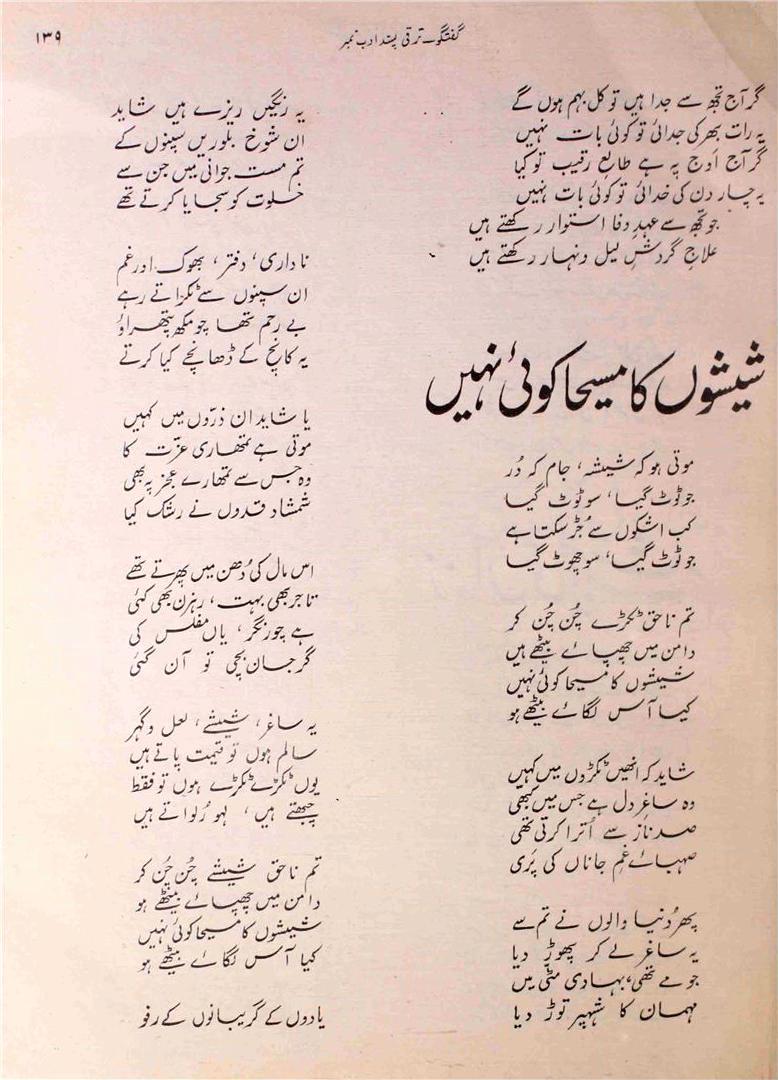 ۱۳۹
گفتگو۔ ترقی پسند ادب نمبر
گر آج تجھ سے جدا ہیں تو کل بہم ہوں گے
یہ رات بھر کی جدائی تو کوئی بات نہیں
گر آج اَوج پہ ہے طالعِ رقیب تو کیا
یہ چار دن کی خدائی تو کوئی بات نہیں
جو تجھ سے عہدِ وفا استوار رکھتے ہیں
علاجِ گردشِ لیل و نہار رکھتے ہیں
شیشوں کا مسیحا کوئی نہیں
موتی ہو کہ شیشہ، جام کہ دُر
جو ٹوٹ گیا، سو ٹوٹ گیا
کب اشکوں سے جُڑ سکتا ہے
جو ٹوٹ گیا، سو چھوٹ گیا
تم ناحق ٹکڑے چُن چُن کر
دامن میں چھپائے بیٹھے ہیں
شیشوں کا مسیحا کوئی نہیں
کیا آس لگائے بیٹھے ہو
شاید کہ انھیں ٹکڑوں میں کہیں
وہ ساغرِ دل ہے جس میں کبھی
صد ناز سے اُترا کرتی تھی
صہبائے غمِ جاناں کی پَری
پھر دُنیا والوں نے تم سے
یہ ساغر لے کر پھوڑ دیا
جو مے تھی، بہادی مٹی میں
مہمان کا شہپر توڑ دیا
یہ رنگیں ریزے ہیں شاید
ان شوخ بلوریں سپنوں کے
تم مست جوانی میں جن سے
خلوت کو سجایا کرتے تھے
ناداری، دفتر، بھوک اور غم
ان سپنوں سے ٹکراتے رہے
بے رحم تھا چومکھ پتھراؤ
یہ کانچ کے ڈھانچے کیا کرتے
یا شاید ان ذرّوں میں کہیں
موتی ہے تمھاری عزّت کا
وہ جس سے تمھارے عجز پہ بھی
شمشاد قدوں نے رشک کیا
اس مال کی دُھن میں پھرتے تھے
تاجر بھی بہت، رہزن بھی کئی
ہے چور نگر، یاں مفلس کی
گر جان بچی تو آن گئی
یہ ساغر، شیشے، لعل و گہر
سالم ہوں تو قیمت پاتے ہیں
یوں ٹکڑے ٹکڑے ہوں تو فقط
چبھتے ہیں، لہو رُلواتے ہیں
تم ناحق شیشے چُن چُن کر
دامن میں چھپائے بیٹھے ہو
شیشوں کا مسیحا کوئی نہیں
کیا آس لگائے بیٹھے ہو
یادوں کے گریبانوں کے رفو